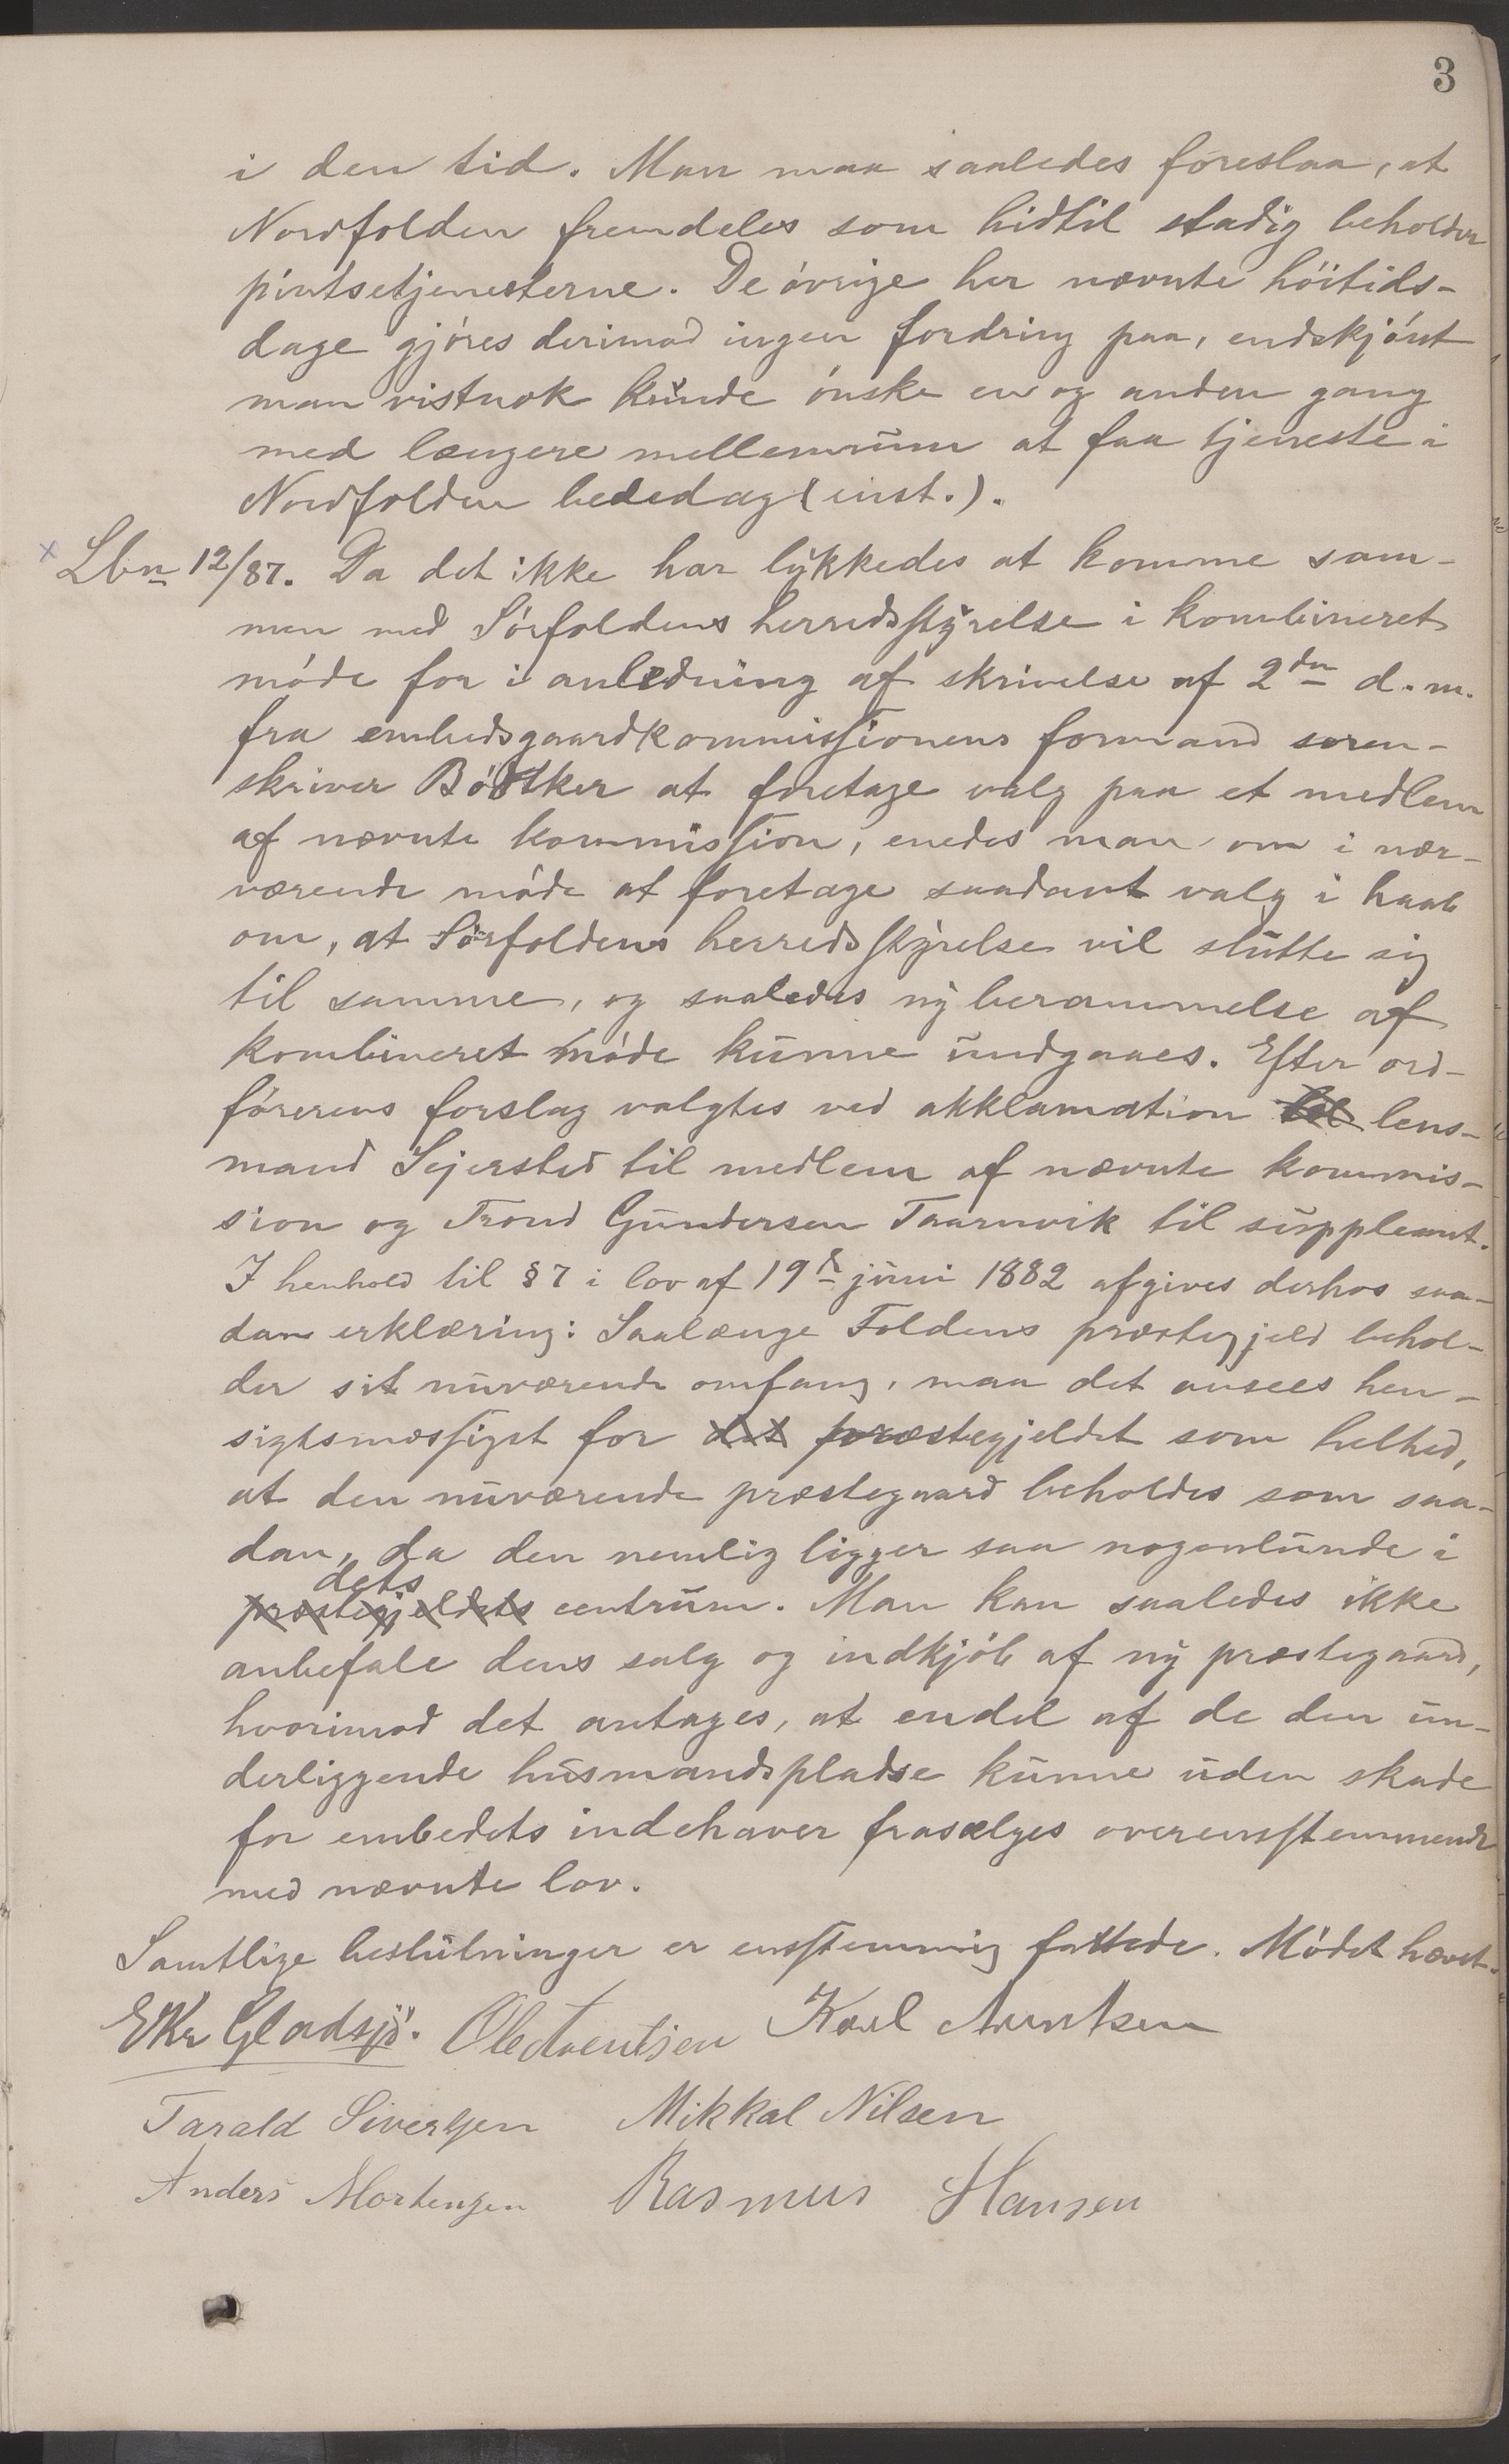 3
i den tid. Man maa saaledes foreslaa, at
Nordfolden fremdeles som hidtil stadig beholder
pintsetjenesterne. De óvrige her nævnte hóitids-
dage gjóres derimod ingen fordring paa, endskjónt
man vistnok kunde ónske en og anden gang
med længere mellemrum at faa tjeneste i
Nordfolden bededag (inst.).
x Lbn 12/87. Da det ikke har lykkedes at komme sam-
men med Sórfoldens herredsstyrelse i kombineret
móde for i anledning af skrivelse af 2den d. m.
fra embedsgaardkommissionens formand soren-
skriver Bódtker at foretage valg paa et medlem
af nævnte kommission, enedes man om i nær-
værende móde at foretage saadant valg i haab
om, at Sórfoldens herredsstyrelse vil slutte sig
til samme, og saaledes ny berammelse af
kombineret móde kunne undgaaes. Efter ord-
fórerens forslag valgtes ved akklamation til lens-
mand Sejersted til medlem af nævnte kommis-
sion og Trond Gundersen Taarnvik til suppleant.
I henhold til § 7 i lov af 19de juni 1882 afgives derhos saa-
dan erklæring: Saalænge Foldens præstegjeld behol-
der sit nuværende omfang, maa det ansees hen-
sigtsmæssigst for det præstegjeldet som helhed,
at den nuværende præstegaard beholdes som saa-
dan, da den nemlig ligger saa nogenlunde i
dets
præstegjeldets centrum. Man kan saaledes ikke
anbefale dens salg og indkjób af ny præstegaard,
hvorimod det antages, at endel af de den un-
derliggende husmandspladse kunne uden skade
for embedets indehaver frasælges overensstemmende
med nævnte lov.
Samtlige beslutninger er enstemmig fattede. Módet hævet.
EKr Gladsjö. Ole Arentsen Karl Arntsen
Tarald Sivertsen Mikkal Nilsen
Anders Mortensen Rasmus Hansen